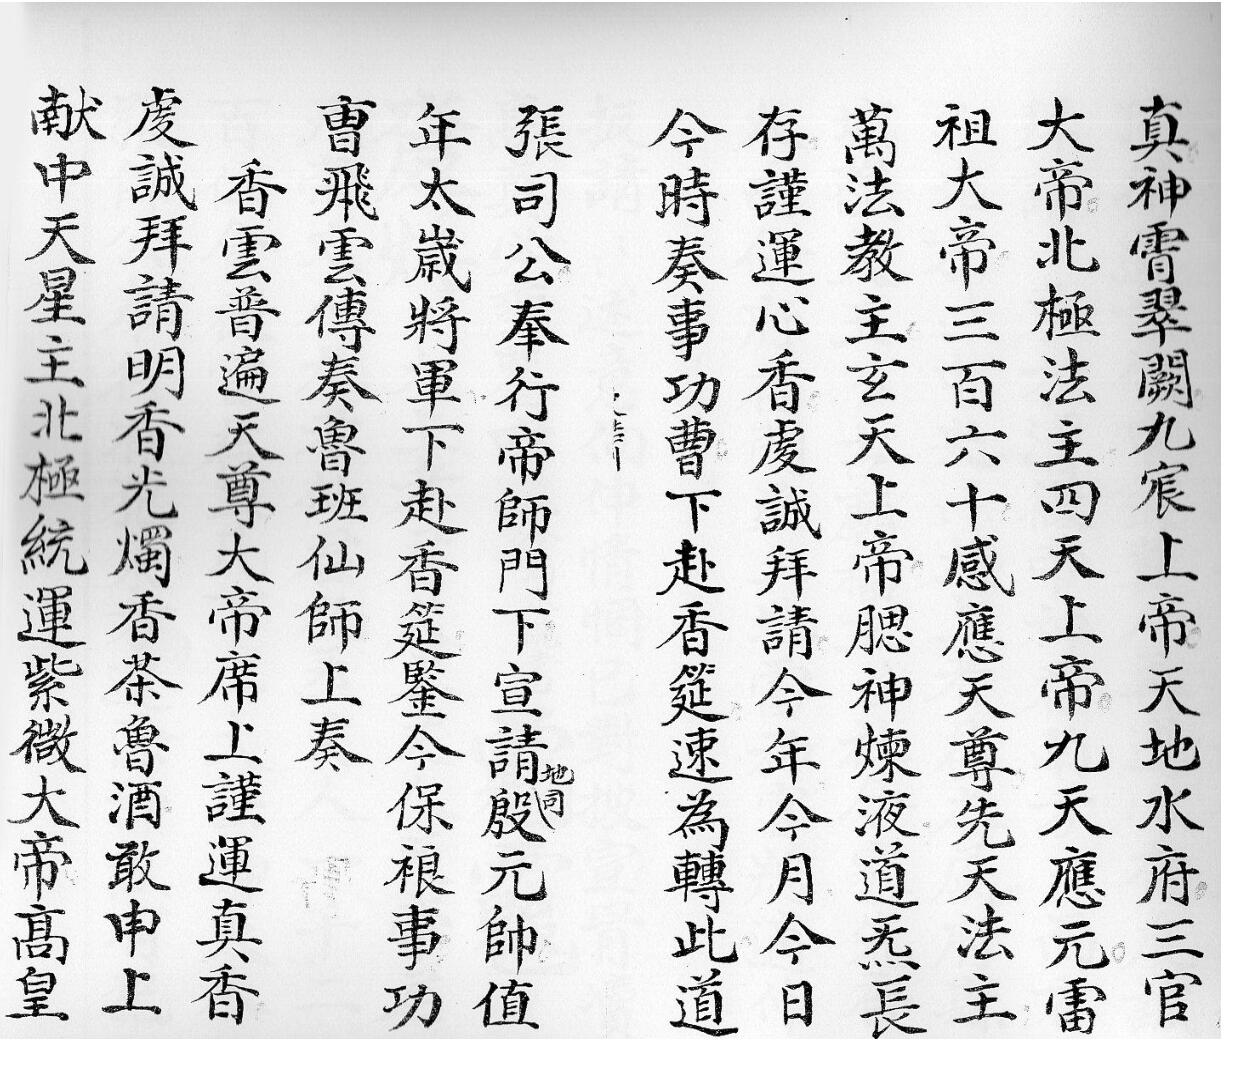 真神霄翠闕九宸上帝天地水府三官
大帝北極法主四天上帝九天應元雷
祖大帝三百六十感應天尊先天法主
萬法教主玄天上帝腮神煉液道炁長
存謹運心香虔誠拜請今年今月今日
今時奏事功曹下赴香筵速為轉此道
張司公奉行帝師門下宣請地司殷元帥值
年太歲將軍下赴香筵鑒今保禄事功
曹飛雲傳奏魯班仙師上奏
香雲普遍天尊大帝席上謹運真香
虔誠拜請明香光燭香茶魯酒敢申上
献中天星主北極統運紫微大帝高皇